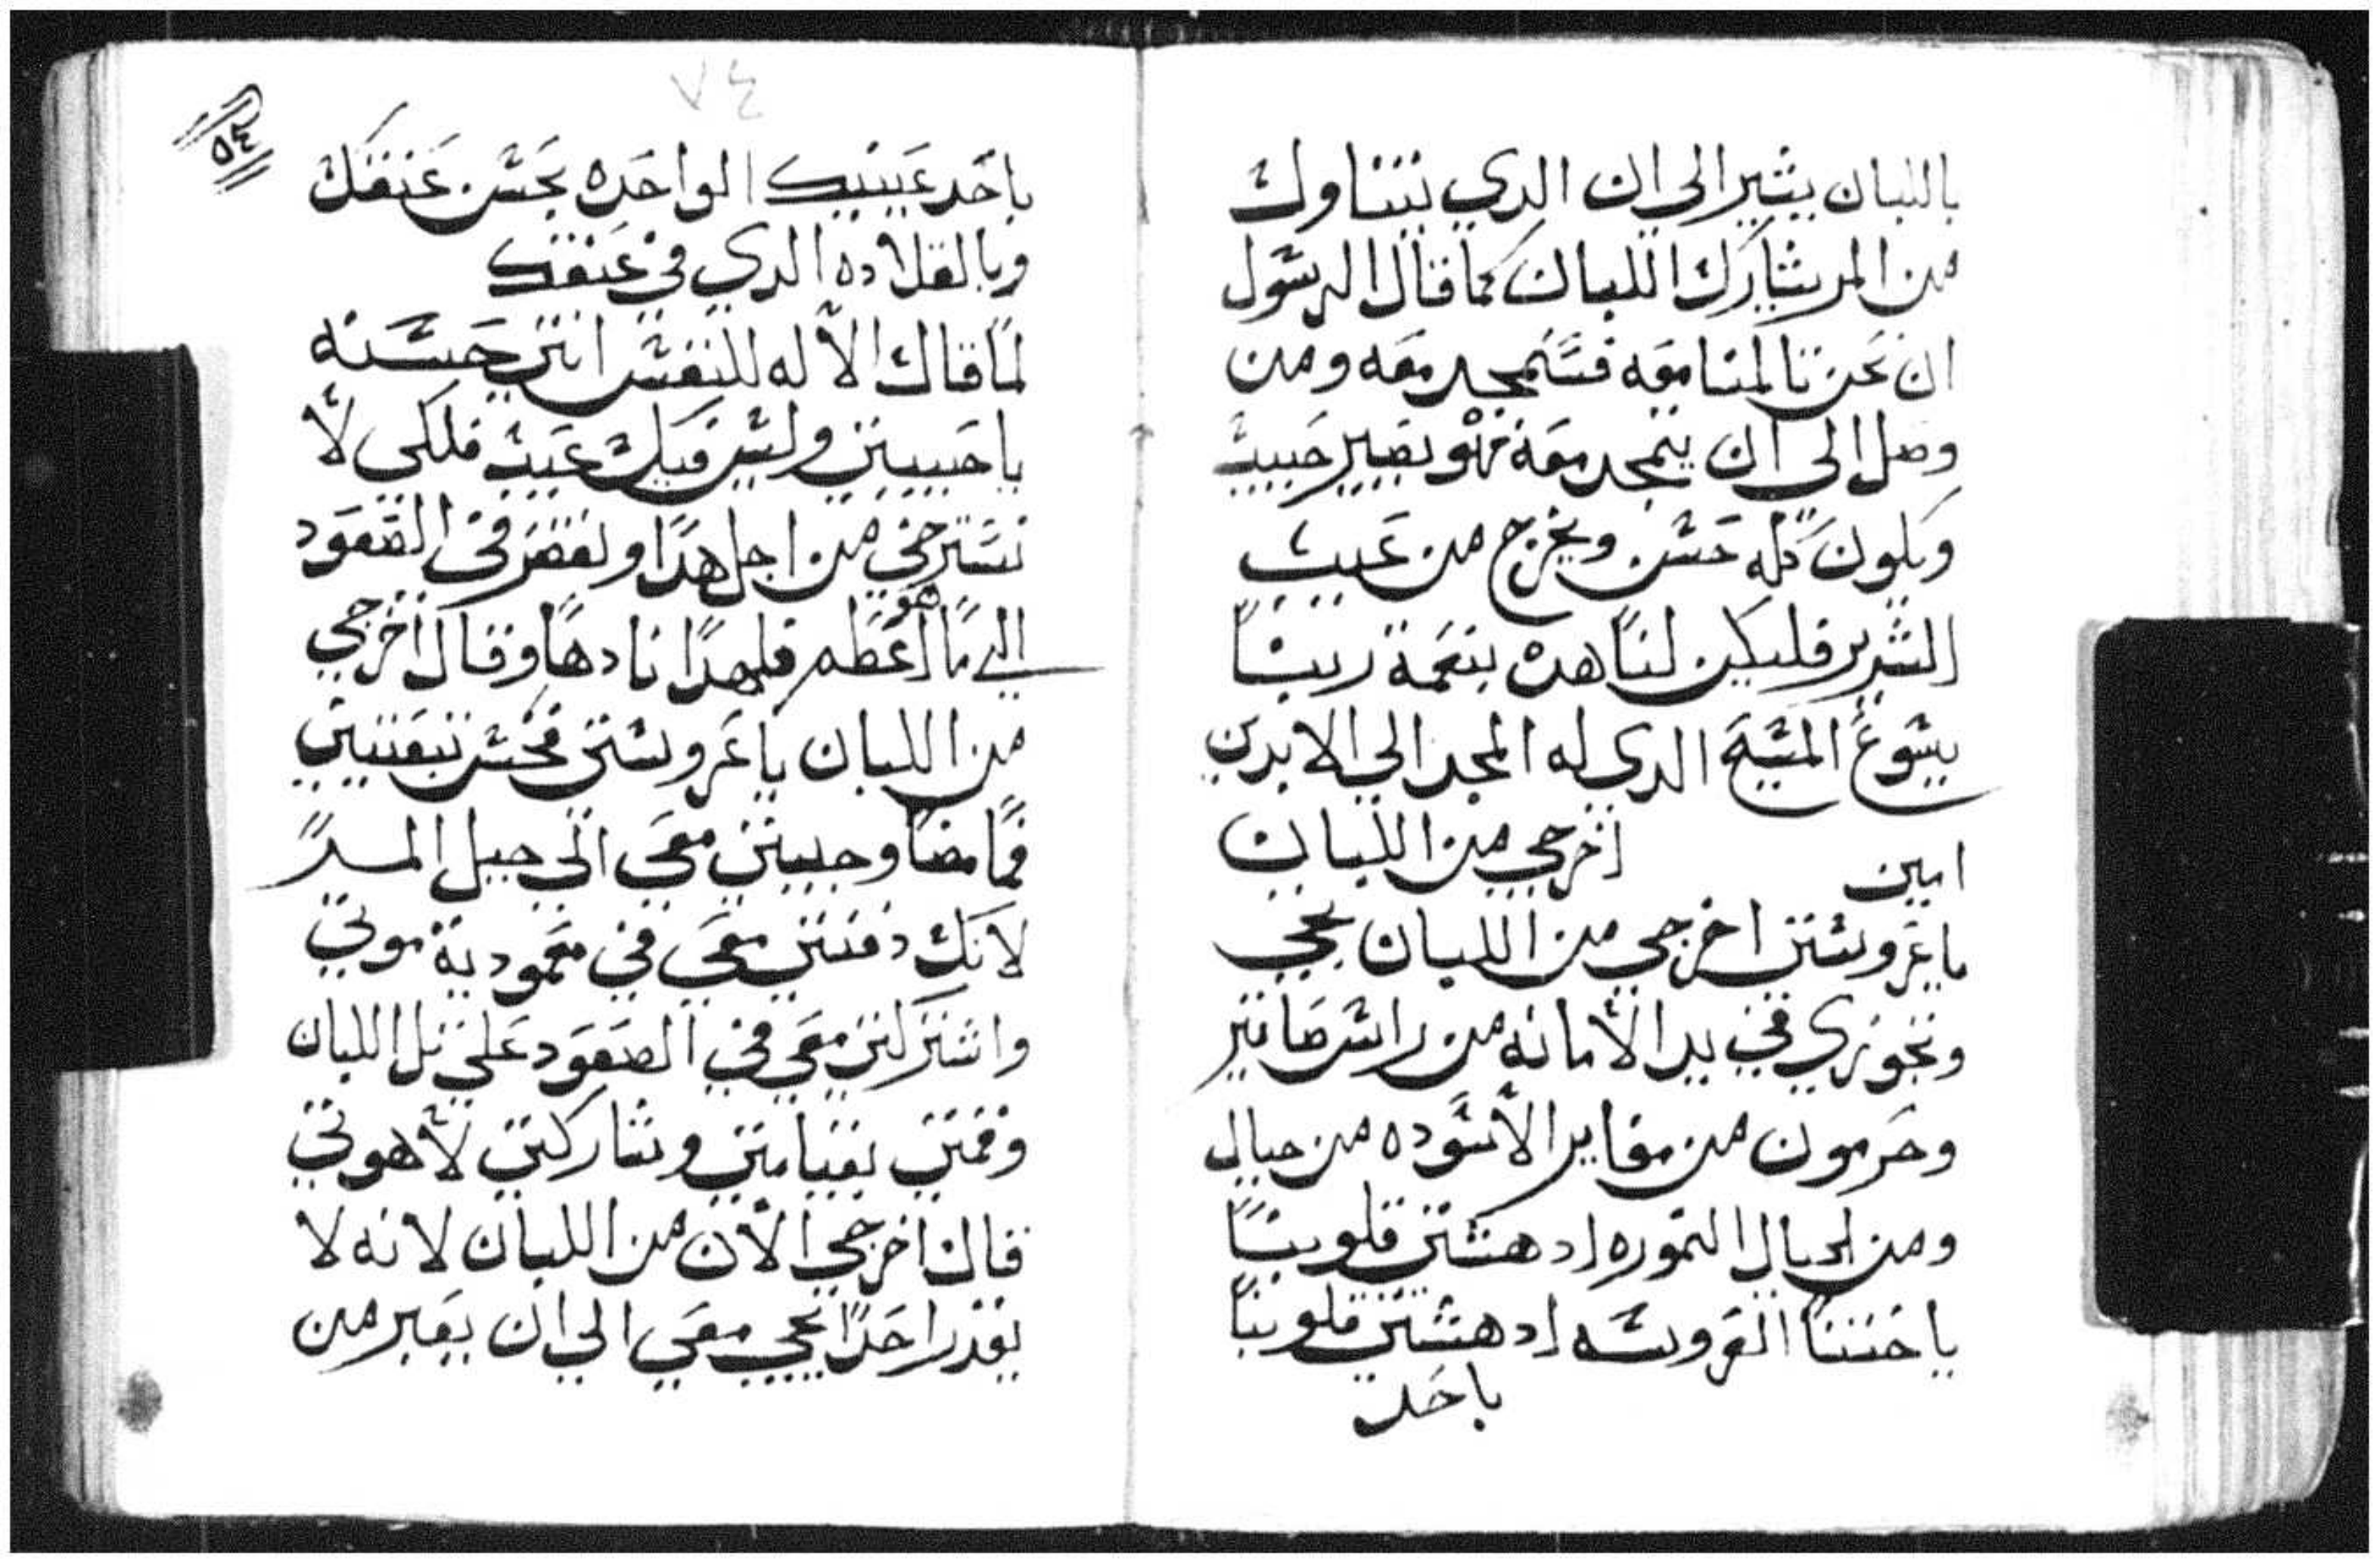 باللبان يشير الي ان الدي يتناول
من المر يشارك اللبان كما قال الرسول
ان نحن تالمنا معه فسنمجد معه ومن
وصل الي ان يتمجد معه فهو يصير حبيب
ويكون كله حسن ويخرج من عيب
الشرير فليكن لنا هده بنعمة ربنا
يسوع المسيح الدي له المجد الي الابدين
امين اخرجي من اللبان
ياعروستي اخرجي من اللبان تجي
وتجوزي في يد الامانه من راس صانير
وحرمون من مقاير الاسوده من جبال
ومن الجبال النموره ادهشتي قلوبنا
ياختنا العروسه ادهشتي قلوبنا
باحد
٧٤
٥٤
باحد عينيك الواحده بحسن عنقك
وبالقلاده الدي في عنقك
لما قال الاله للنفس انتي حسنه
ياحبيبتي وليس فيك عيب فلكي لا
تسترخي من اجل هدا وتقصر في الصعود
الي ما هو اعظم فلهدا نادها وقال اخرجي
من اللبان ياعروستي فحسن تبعتيني
فيما مضا وجيتي معي الي جبل المر
لانك دفنتي معي في معمودية موتي
واشتركتي معي في الصعود علي تل اللبان
وقمتي بقيامتي وتشاركتي لاهوتي
قال اخرجي الان من اللبان لانه لا
يقدر احدا يجي معي الي ان يعبر من